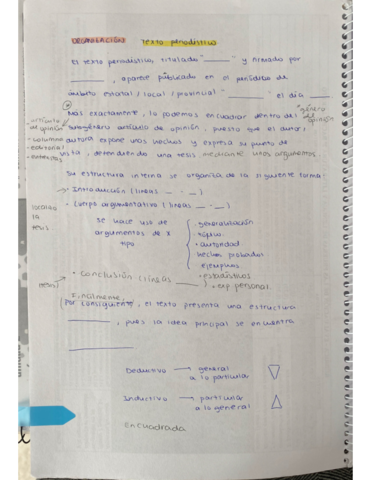 ORGANIZACIÓN Texto periodístico
El texto periodístico, titulado "______" y firmado por
______, aparece publicado en el periódico de
ámbito estatal / local / provincial "______" el día ____.
Más exactamente, lo podemos encuadrar dentro del "género de opinión"
subgénero artículo de opinión, puesto que el autor/
autora expone unos hechos y expresa su punto de
vista, defendiendo una tesis mediante unos argumentos.
artículo
de opinión
• columna
• editorial
Su estructura interna se organiza de la siguiente forma:
→ Introducción (líneas _ - _)
• Cuerpo argumentativo (líneas _ - _)
localizo
la
tesis
se hace uso de
argumentos de x
tipo
• generalización
• tópico
• autoridad
hechos probados
ejemplos
• estadísticos
• exp. personal.
tesis
• Conclusión (líneas ____)
Finalmente,
(Por consiguiente, el texto presenta una estructura
______, pues la idea principal se encuentra
______
Deductivo → general
a lo particular
Inductivo → particular
a lo general
encuadrada